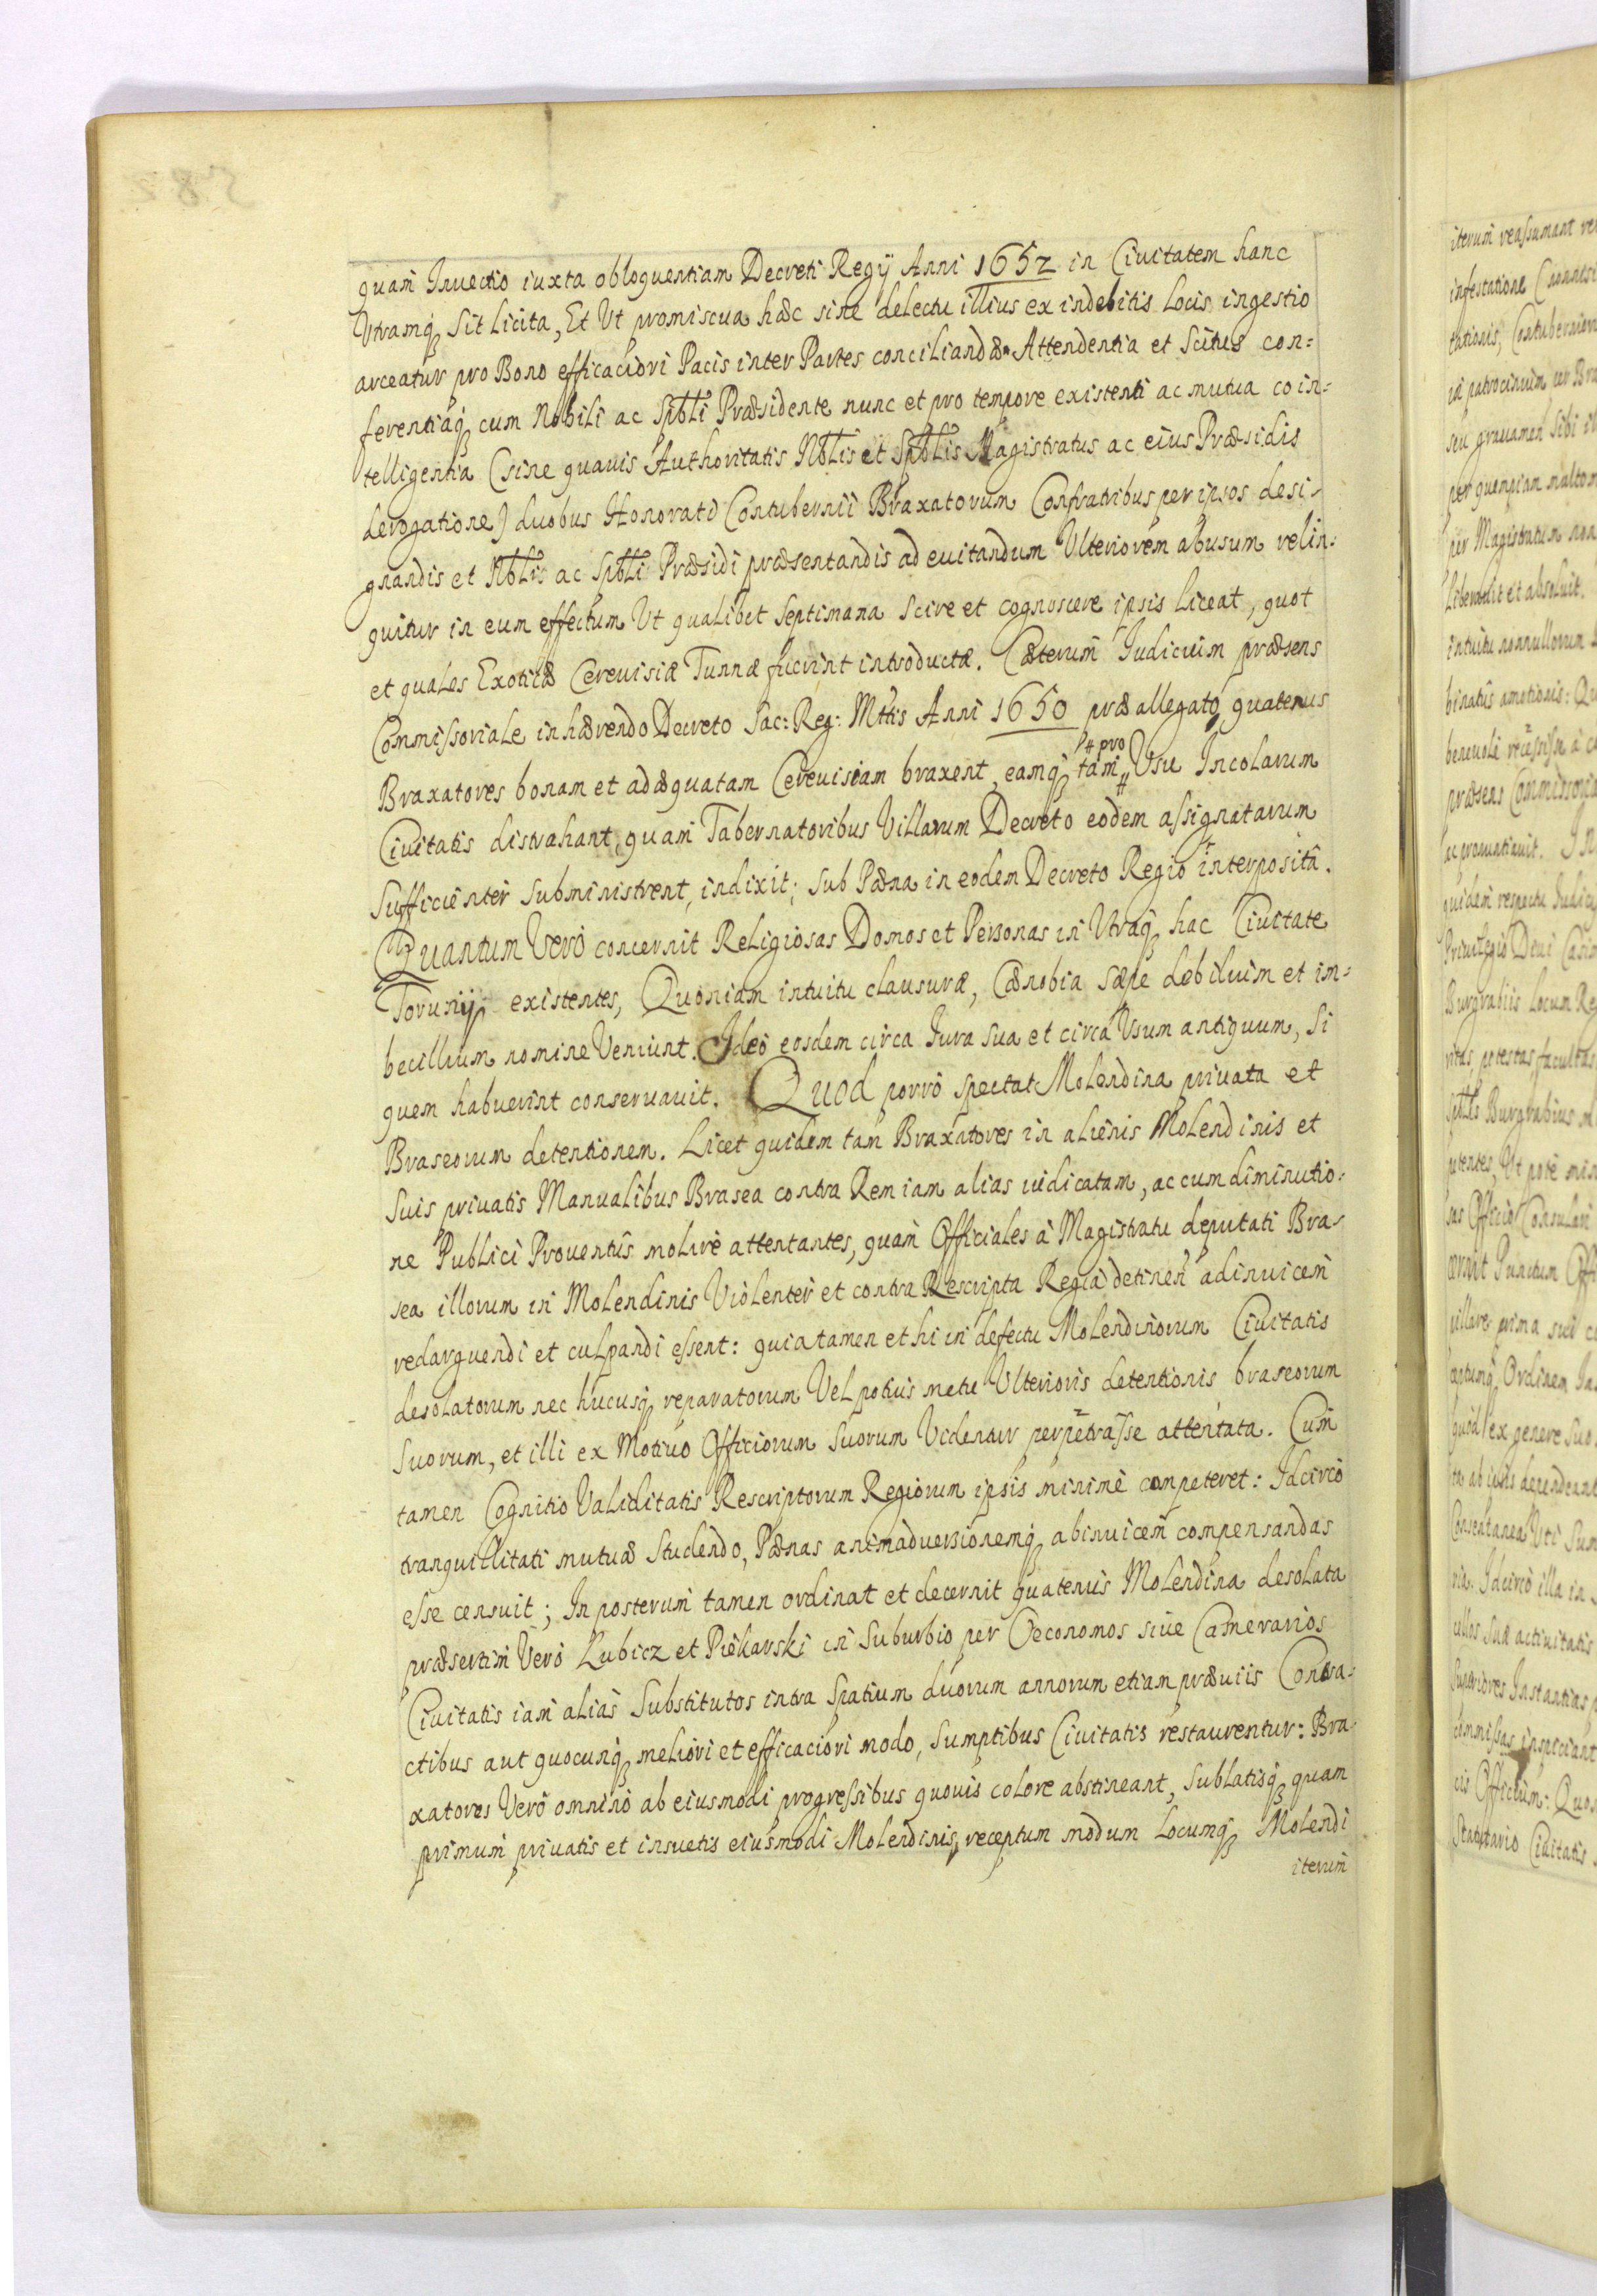 quam Inuectio iuxta obloquentiam Decreti Regÿ Anni 1652 in Ciuitatem hanc
Vtramq3 Sit Licita, Et Vt promiscua hæc sine delectu illius ex indebitis Locis ingestio
arceatur pro Bono efficaciori Pacis inter Partes conciliandæ Attendentia et Scitus con=
ferentiaq3 cum Nobili ac Spbli Præsidente nunc et pro tempore existenti ac mutua co in=
telligentia (sine quauis Authoritatis Nblis et Spblis Magistratus ac eius Præsidis
derogatione) duobus Honorati Contubernii Braxatorum Confratribus per ipsos desi=
gnandis et Nbli ac Spbli Præsidi præsentandis ad euitandum Vlteriorem abusum relin=
quitur in eum effectum Vt qualibet Septimana Scire et cognoscere ipsis Liceat, quot
et quales Exoticæ Cereuisiæ Tunnæ fuerint introductæ. Cæterum Iudicium præsens
Commissoriale inhærendo Decreto Sac: Reg: Mttis Anni 1650 præallegato, quatenus
Braxatores bonam et adæquatam Cereuisiam braxent, eamq3 tam # pro Vsu Incolarum
Ciuitatis distrahant, quam Tabernatoribus Villarum Decreto eodem assignatarum
Sufficienter Subministrent, indixit; Sub Pæna in eodem Decreto Regio interposita.
Quantum Vero concernit Religiosas Domos et Personas in Vtraq3 hac Ciuitate
Torunÿ existentes, Quoniam intuitu clausuræ, Cænobia Sæpe debilium et im=
becillium nomine Veniunt. Ideo eosdem circa Iura Sua et circa Vsum antiquum, Si
quem habuerint conseruauit. Quod porro spectat Molendina priuata et
Braseorum detentionem. Licet quidem tam Braxatores in alienis Molendinis et
Suis priuatis Manualibus Brasea contra Rem iam alias iudicatam, ac cum diminutio=
ne Publici Prouentus molire attentantes, quam Officiales à Magistratu deputati Bra=
sea illorum in Molendinis Violenter et contra Rescripta Regia detinen adinuicem
redarguendi et culpandi essent: quia tamen et hi in defectu Molendinorum Ciuitatis
desolatorum nec hucusq3 reparatorum Vel potius metu Vlterioris detentionis braseorum
Suorum, et illi ex Motiuo Officiorum Suorum Videntur perpetrasse attentata. Cum
tamen Cognitio Validitatis Rescriptorum Regiorum ipsis minime competeret: Idcirco
tranquillitati mutuæ Studendo, Pænas animaduersionemq3 abinuicem compensandas
esse censuit; In posterum tamen ordinat et decernit quatenus Molendina desolata
præsertim Vero Lubicz et Piekarski in Suburbio per Oeconomos siue Camerarios
Ciuitatis iam alias Substitutos intra Spatium duorum annorum etiam præuiis Contra=
ctibus aut quocunq3 meliori et efficaciori modo, Sumptibus Ciuitatis restaurentur: Bra=
xatores Vero omnino ab eiusmodi progressibus quouis colore abstineant, Sublatisq3 quam
primum priuatis et insuetis eiusmodi Molendinis, receptum modum Locumq3 Molendi
iterum
iterum reassumant
infestatione
tationis,
seu grauamen Sibi
per quempiam
per Magistratum non
Liberauit et absoluit.
intuitu nonnullorum
præsens
ac pronuntiauit. In
quidem respectu
Priuilegio Diui
Burgrabiis Locum
potestas facultas
Burgrabius
petentes,
Officio Consulari
prima
Ordinem
quod ex genere Suo
Idcirco illa in
ullos Suæ actiuitatis
Superiores Instantias
commissas inspiciant
Officium:
Statutario Ciuitatis